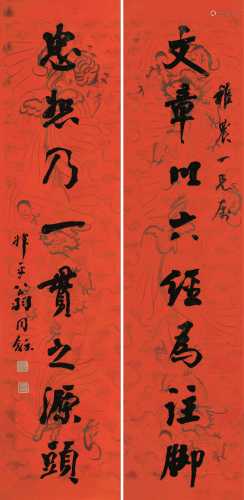 雅農一兄屬
文章以六經為註脚
忠恕乃一貫之源頭
叔平翁同龢